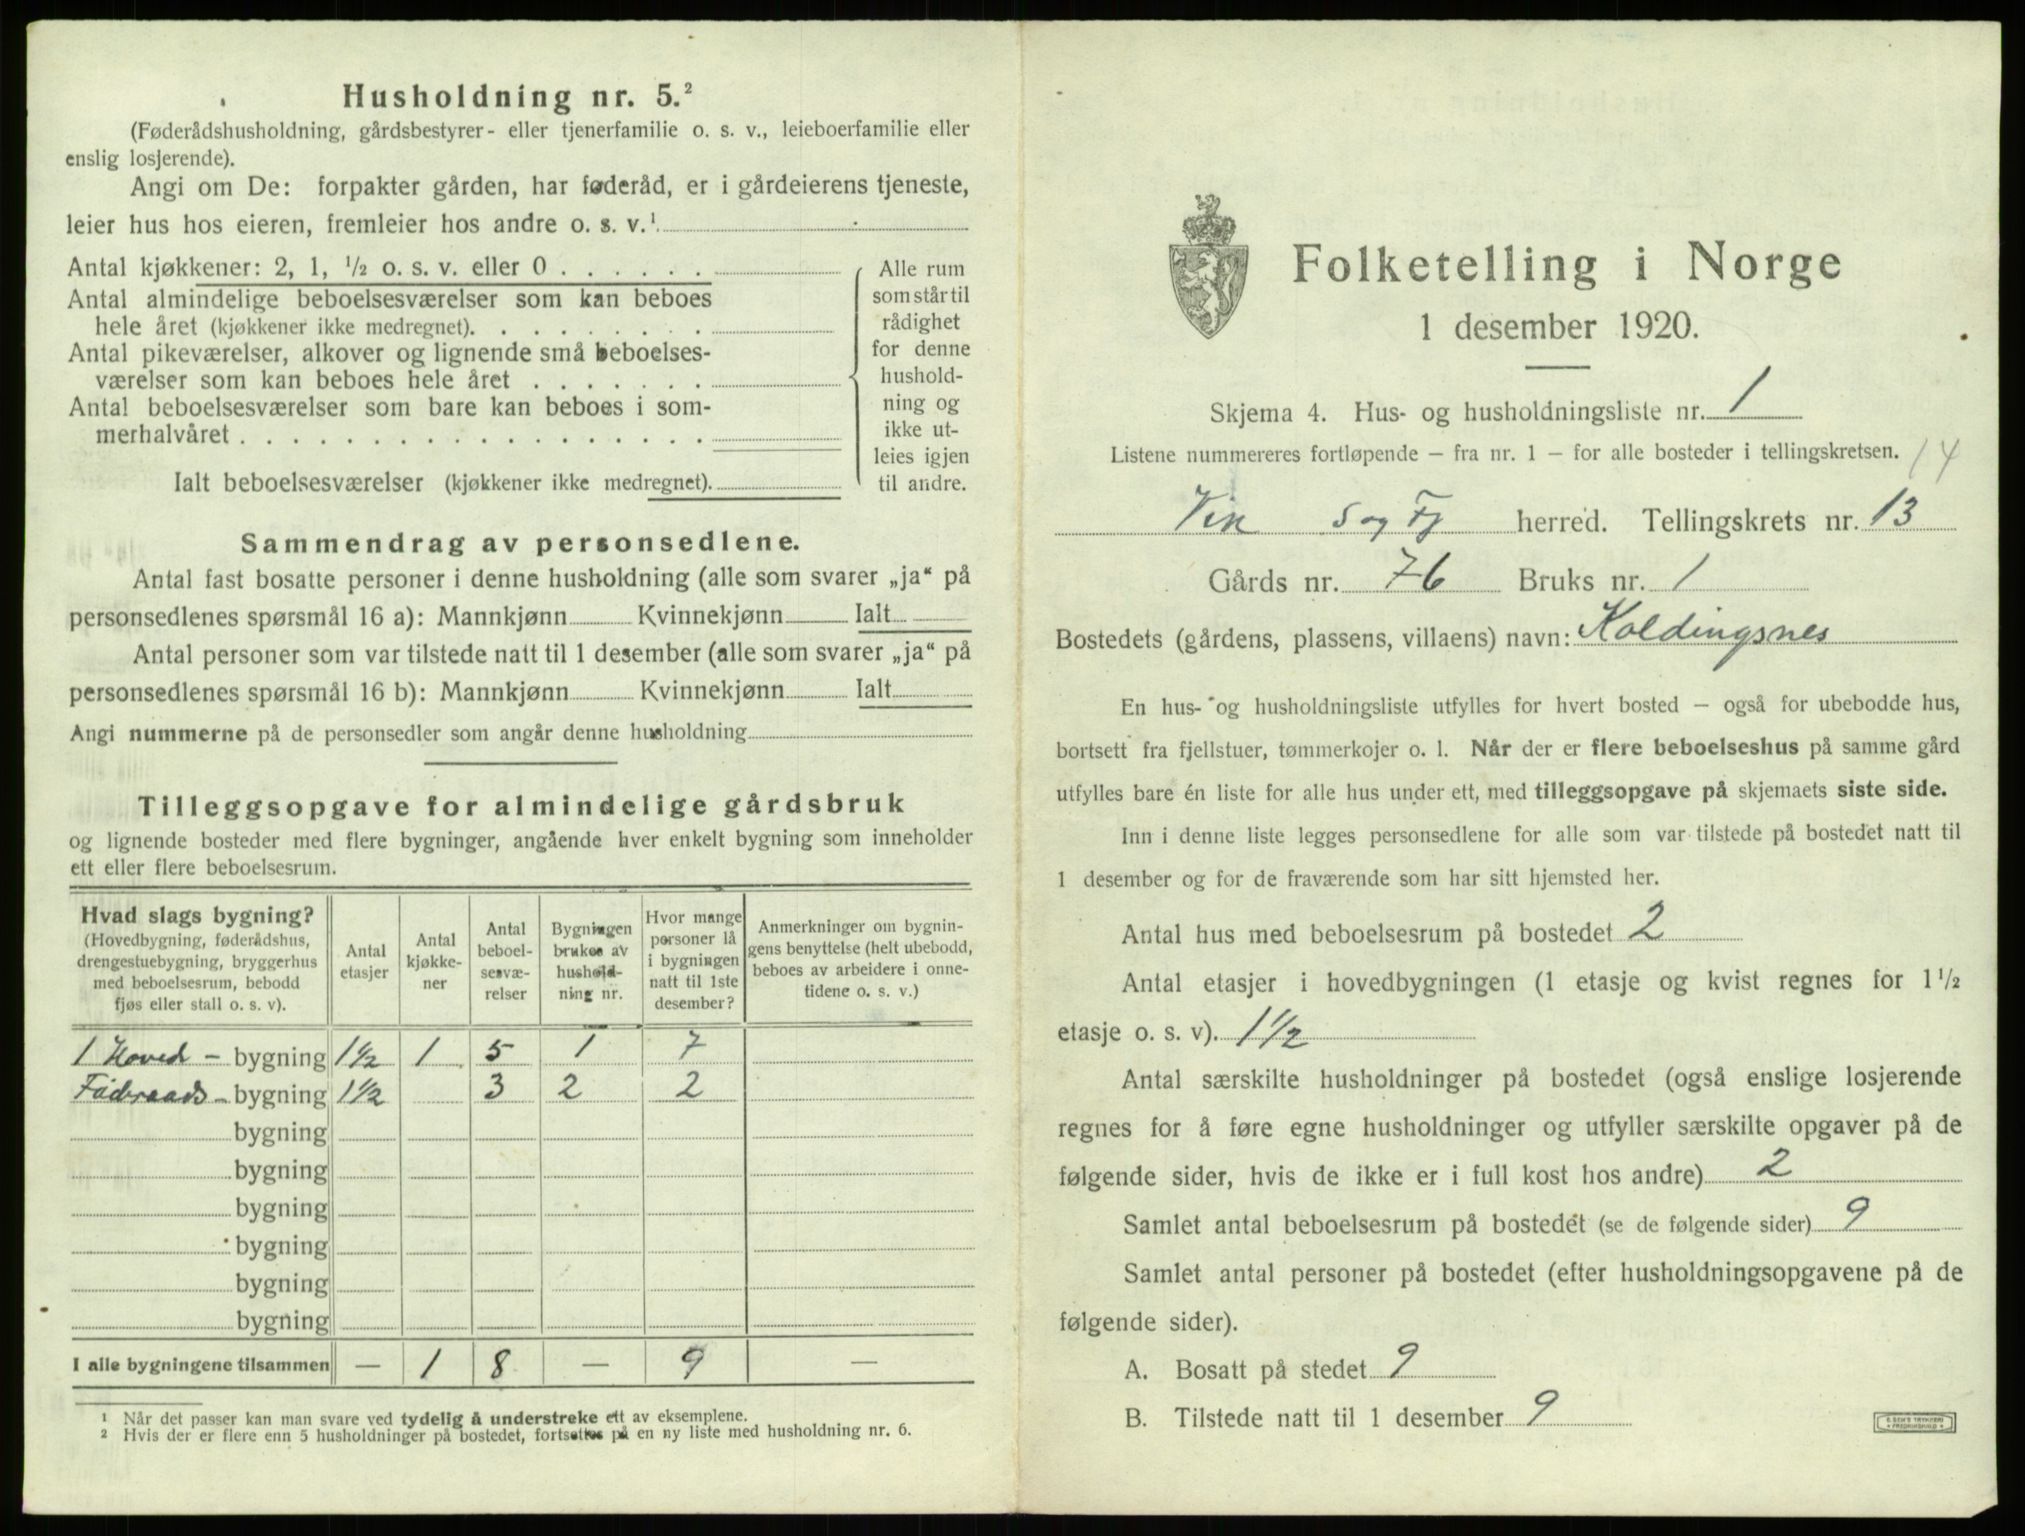 Husholdning nr. 5.²
(Føderådshusholdning, gårdsbestyrer- eller tjenerfamilie o. s. v., leieboerfamilie eller
enslig losjerende).
Angi om De: forpakter gården, har føderåd, er i gårdeierens tjeneste,
leier hus hos eieren, fremleier hos andre o. s. v.¹
Antal kjøkkener: 2, 1, ½ o. s. v. eller 0 . . . . . .
Antal almindelige beboelsesværelser som kan beboes
hele året (kjøkkener ikke medregnet). . . . . . . . .
Antal pikeværelser, alkover og lignende små beboelses-
værelser som kan beboes hele året . . . . . . .
Antal beboelsesværelser som bare kan beboes i som-
merhalvåret . . . . . . . . . . . . . . . . . .
Ialt beboelsesværelser (kjøkkener ikke medregnet).
Alle rum
som står til
rådighet
for denne
hushold-
ning og
ikke ut-
leies igjen
til andre.
Sammendrag av personsedlene.
Antal fast bosatte personer i denne husholdning (alle som svarer „ja“ på
personsedlenes spørsmål 16 a): Mannkjønn Kvinnekjønn Ialt
Antal personer som var tilstede natt til 1 desember (alle som svarer „ja“ på
personsedlenes spørsmål 16 b): Mannkjønn Kvinnekjønn Ialt
Angi nummerne på de personsedler som angår denne husholdning
Tilleggsopgave for almindelige gårdsbruk
og lignende bosteder med flere bygninger, angående hver enkelt bygning som inneholder
ett eller flere beboelsesrum.
Hvad slags bygning?
(Hovedbygning, føderådshus,
drengestuebygning, bryggerhus
med beboelsesrum, bebodd
fjøs eller stall o. s. v).
Antal
etasjer
Antal
kjøkke-
ner
Antal
beboel-
sesvæ-
relser
Bygningen
brukes av
hushold-
ning nr.
Hvor mange
personer lå
i bygningen
natt til 1ste
desember?
Anmerkninger om bygnin-
gens benyttelse (helt ubebodd,
beboes av arbeidere i onne-
tidene o. s. v.)
1 Hoved - bygning 1½ 1 5 1 7
Føderaads - bygning 1½ 3 2 2
bygning
bygning
bygning
bygning
bygning
bygning
I alle bygningene tilsammen — 1 8 — 9 —
¹ Når det passer kan man svare ved tydelig å understreke ett av eksemplene.
² Hvis der er flere enn 5 husholdninger på bostedet, fortsettes på en ny liste med husholdning nr. 6.
Folketelling i Norge
1 desember 1920.
Skjema 4. Hus- og husholdningsliste nr. 1
Listene nummereres fortløpende — fra nr. 1 — for alle bosteder i tellingskretsen. 14
Vik S og Fj herred. Tellingskrets nr. 13
Gårds nr. 76 Bruks nr. 1
Bostedets (gårdens, plassens, villaens) navn: Koldingsnes
En hus- og husholdningsliste utfylles for hvert bosted — også for ubebodde hus,
bortsett fra fjellstuer, tømmerkojer o. l. Når der er flere beboelseshus på samme gård
utfylles bare én liste for alle hus under ett, med tilleggsopgave på skjemaets siste side.
Inn i denne liste legges personsedlene for alle som var tilstede på bostedet natt til
1 desember og for de fraværende som har sitt hjemsted her.
Antal hus med beboelsesrum på bostedet 2
Antal etasjer i hovedbygningen (1 etasje og kvist regnes for 1½
etasje o. s. v). 1½
Antal særskilte husholdninger på bostedet (også enslige losjerende
regnes for å føre egne husholdninger og utfyller særskilte opgaver på de
følgende sider, hvis de ikke er i full kost hos andre) 2
Samlet antal beboelsesrum på bostedet (se de følgende sider) 9
Samlet antal personer på bostedet (efter husholdningsopgavene på de
følgende sider).
A. Bosatt på stedet 9
B. Tilstede natt til 1 desember 9